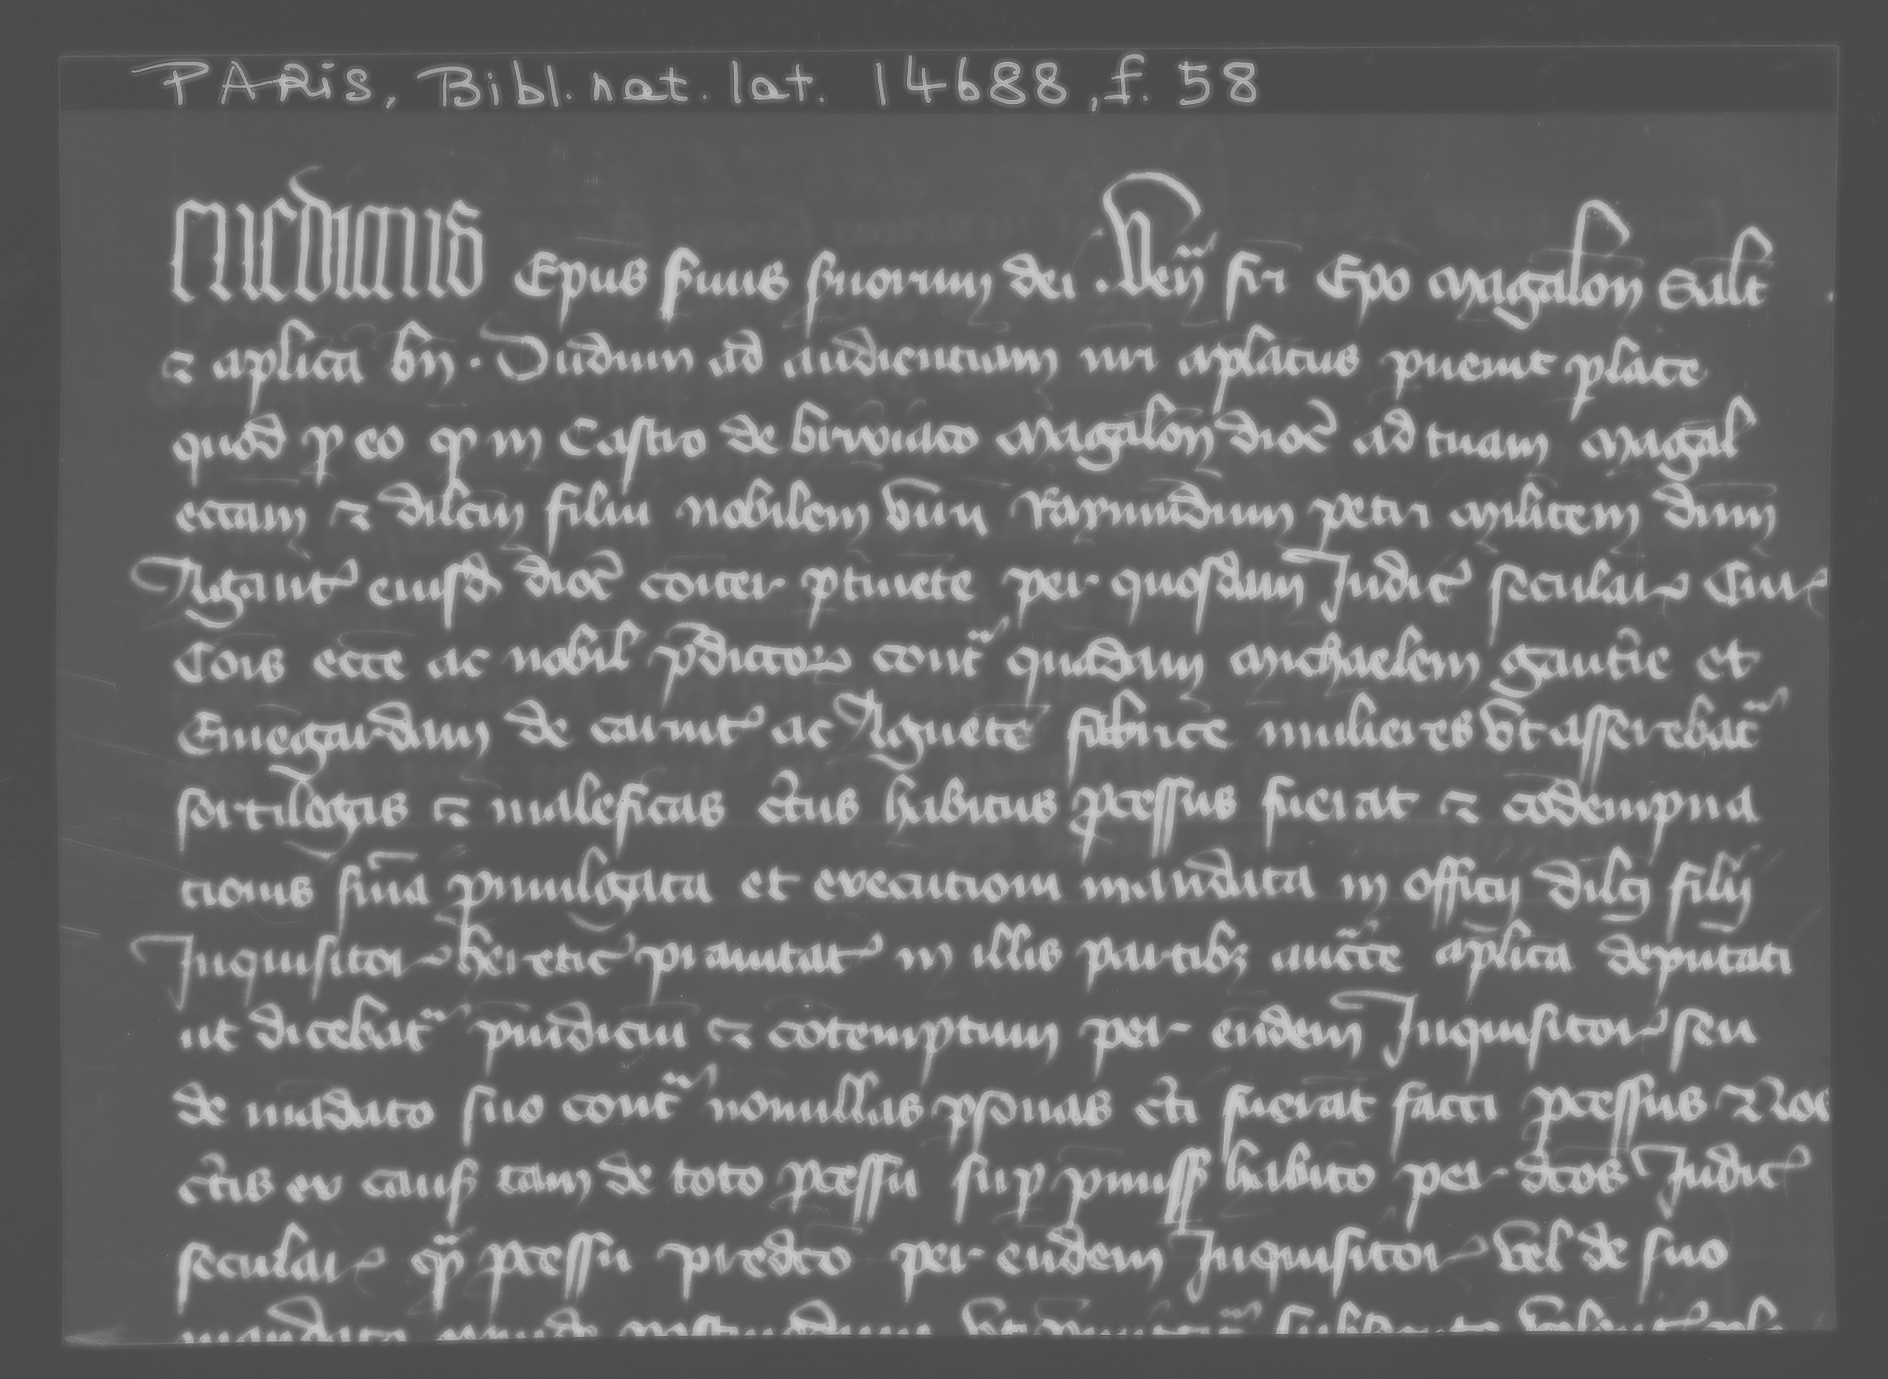 PARIS, Bibl. nat. lat. 14688, f. 58
enedictus Epus seruus seruorum dei . Ven fri Epo Magalon Salt
⁊ aplica bn . Dudum ad audientiam nri aplatus puenit plate
quod p eo qp in Castro de Magalon dioc ad tuam Magal
ecclam ⁊ dilcm filiu nobilem viru Raymundum petri militem dnm
eiusd dioc coiter ptinete per quosdam Judic secular Cur
Cois ecce ac nobil pdictor cont quadam Michaelem et
de ac Agnete mulieres vt asserebat
sortilegas ⁊ maleficas ctus habitus pcessus fuerat ⁊ codempna
tionis snia pmulgata et executioni mandata in officij dilcj filij
Inquisitor heretic prauitat in illis partib aucte aplica deputati
ut dicebat piudiciu ⁊ cotemptum per eudem Inquisitor seu
de madato suo cont nonullas psonas cti fuerat facti pcessus ⁊
ctis ex caus tam de toto pcessu sup pmiss habito per dcos Judic
secular qp pcessu predco per eudem Inquisitor vel de suo